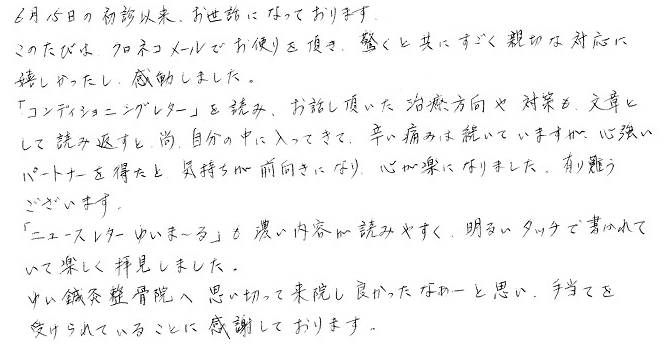 6月15日の初診以来、お世話になっております。
このたびは、クロネコメールでお便りを頂き、驚くと共にすごく親切な対応に
嬉しかったし、感動しました。
「コンディショニングレター」を読み、お話し頂いた治療方向や対策も、文章と
して読み返すと、尚、自分の中に入ってきて、辛い痛みは続いていますが、心強い
パートナーを得たと気持ちが前向きになり、心が楽になりました。有り難う
ございます。
「ニュースレターゆいま～る」も濃い内容が読みやすく、明るいタッチで書かれて
いて楽しく拝見しました。
ゆい鍼灸整骨院へ思い切って来院し良かったなあーと思い、手当てを
受けられていることに感謝しております。